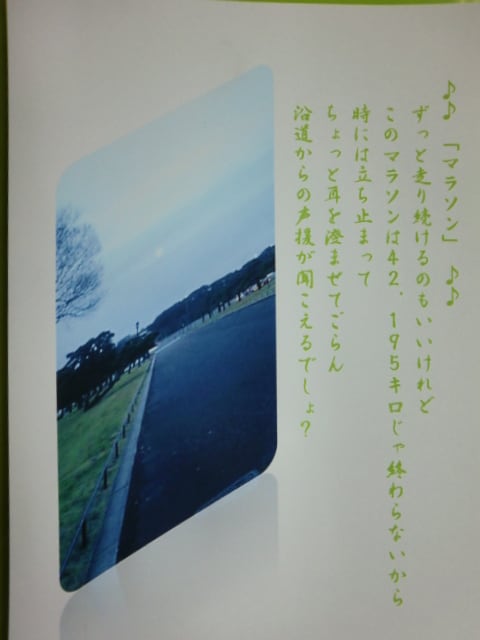 ♪♪ 「マラソン」 ♪♪
ずっと走り続けるのもいいけれど
このマラソンは42.195キロじゃ終わらないから
時には立ち止まって
ちょっと耳を澄ませてごらん
沿道からの声援が聞こえるでしょ?